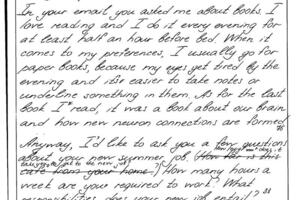 In your email, you asked me about books. I
love reading and I do it every evening for
at least half an hour before bed. When it
comes to my preferences, I usually go for
paper books, because my eyes get tired by the
evening and it's easier to take notes or
underline something in them. As for the last
book I'read, it was a book about our brain
and how new neuron connections are formed.
Anyway, I'd like to ask you a few questions
about your new summer job. How far is this
cafe from your home? How many hours a
week are you required to work? What
responsibilities does your new job entail?